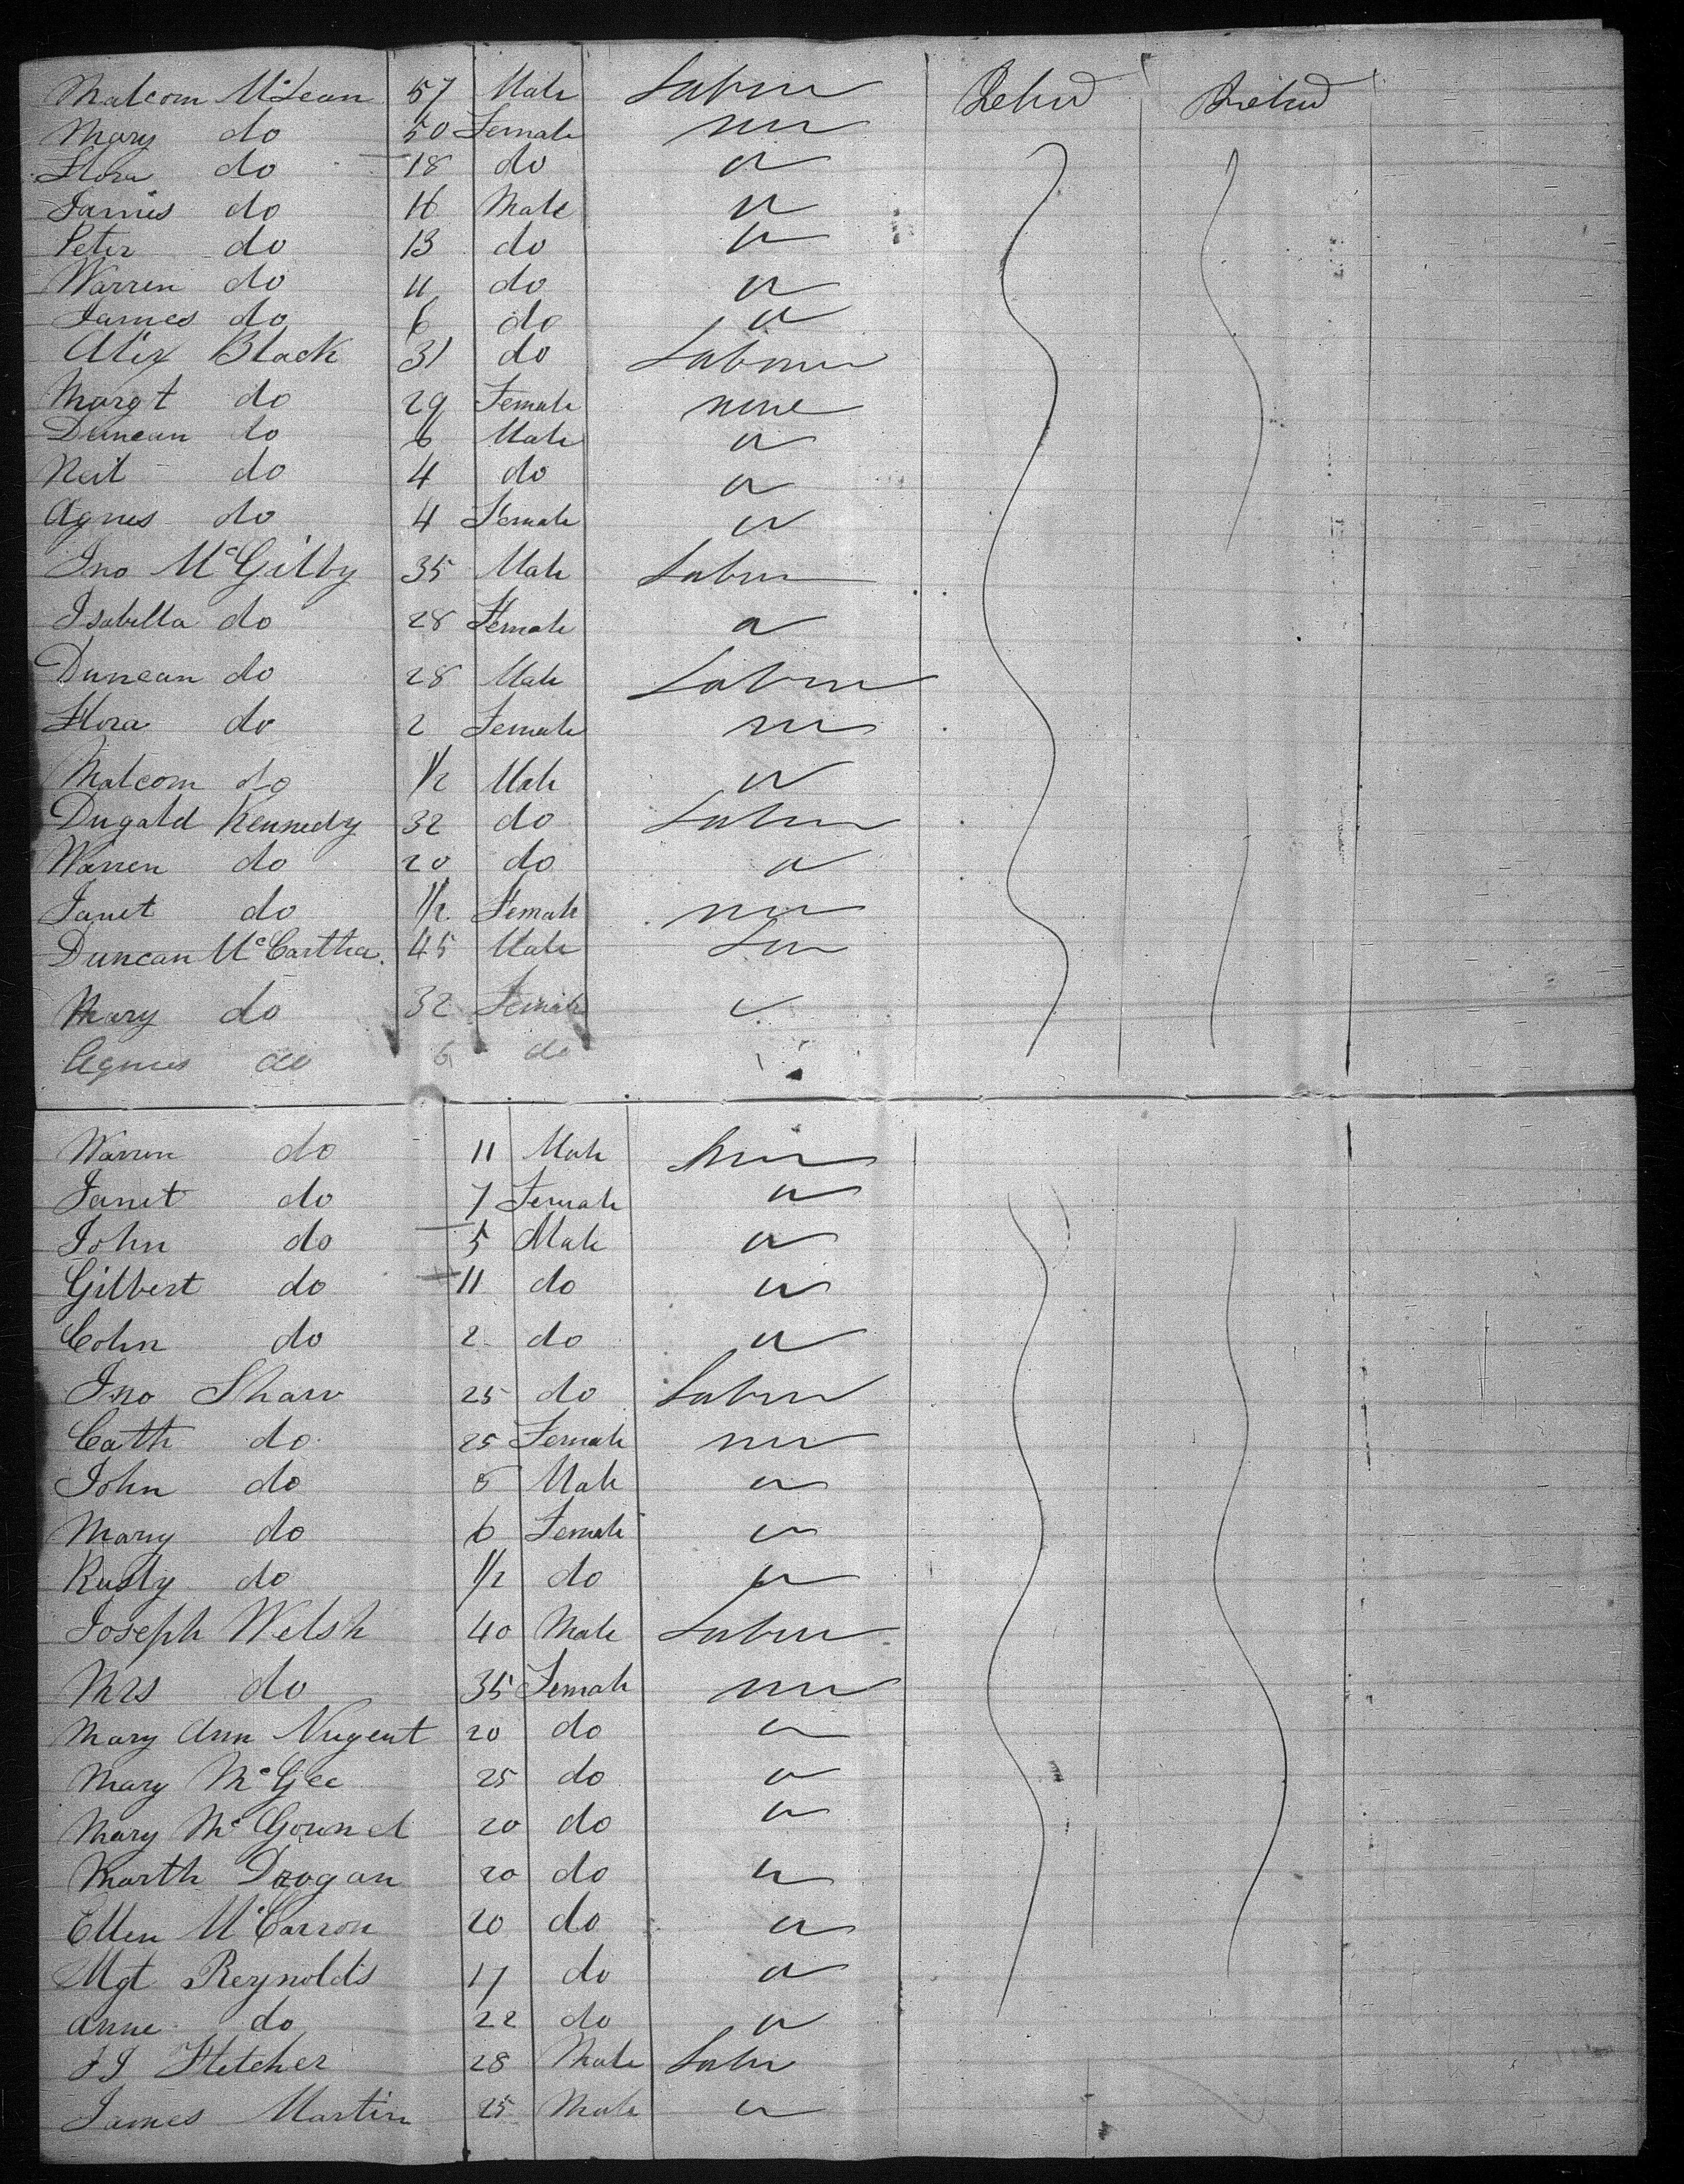 Malcom McLean 57 Male Labour Ireland Ireland
Mary do 50 Female none
Flora do 18 do "
James do 16 Male "
Peter do 13 do "
Warren do 11 do "
James do 6 do "
Alix Black 31 do Labourer
Margt do 29 Female none
Duncan do 6 Male "
Neil do 4 do "
Agnes do 4 Female "
Jno McGilby 35 Male Labour
Isabella do 28 Female "
Duncan do 28 Male Labour
Flora do 2 Female none
Malcom do 1/2 Male "
Dugald Kennedy 32 do Labour
Warren do 20 do "
Janet do 1/2 Female none
Duncan McCartha 45 Male
Mary do 32 Female "
Agnes do 6 do
Warren do 11 Male
Janet do 7 Female "
John do 5 Male "
Gilbert do 11 do "
Colin do 2 do "
Jno Shaw 25 do Labour
Cath do 25 Female none
John do 8 Male "
Mary do 6 Female "
Rusty do 1/2 do "
Joseph Welsh 40 Male Labour
Mrs do 35 Female none
Mary Ann Nugent 20 do "
Mary McGee 25 do "
Mary McGounel 20 do "
Marth Drogan 20 do "
Ellen McCarron 20 do "
Mgt Reynolds 17 do "
Anne do 22 do "
Fletcher 28 Male Labr
James Martin 25 Male "